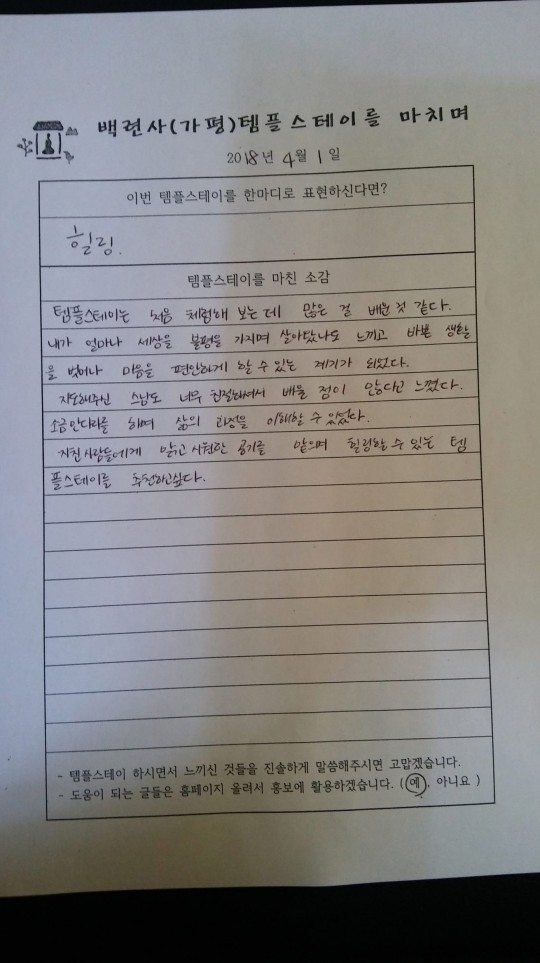 백련사(가평)템플스테이를 마치며
2018년 4월 1일
이번 템플스테이를 한마디로 표현하신다면?
힐링.
템플스테이를 마친 소감
템플스테이는 처음 체험해 보는데 많은 걸 배운 것 같다.
내가 얼마나 세상을 불평을 가지며 살아왔나도 느끼고 바쁜 생활
을 벗어나 마음을 편안하게 할 수 있는 계기가 되었다.
지도해주신 스님도 너무 친절하셔서 배울 점이 많다고 느꼈다.
소금만다라를 하며 삶의 과정을 이해할 수 있었다.
지친 사람들에게 맑고 시원한 공기를 맡으며 힐링할 수 있는 템
플스테이를 추천하고싶다.
- 템플스테이 하시면서 느끼신 것들을 진솔하게 말씀해주시면 고맙겠습니다.
- 도움이 되는 글들은 홈페이지 올려서 홍보에 활용하겠습니다. (예, 아니요 )